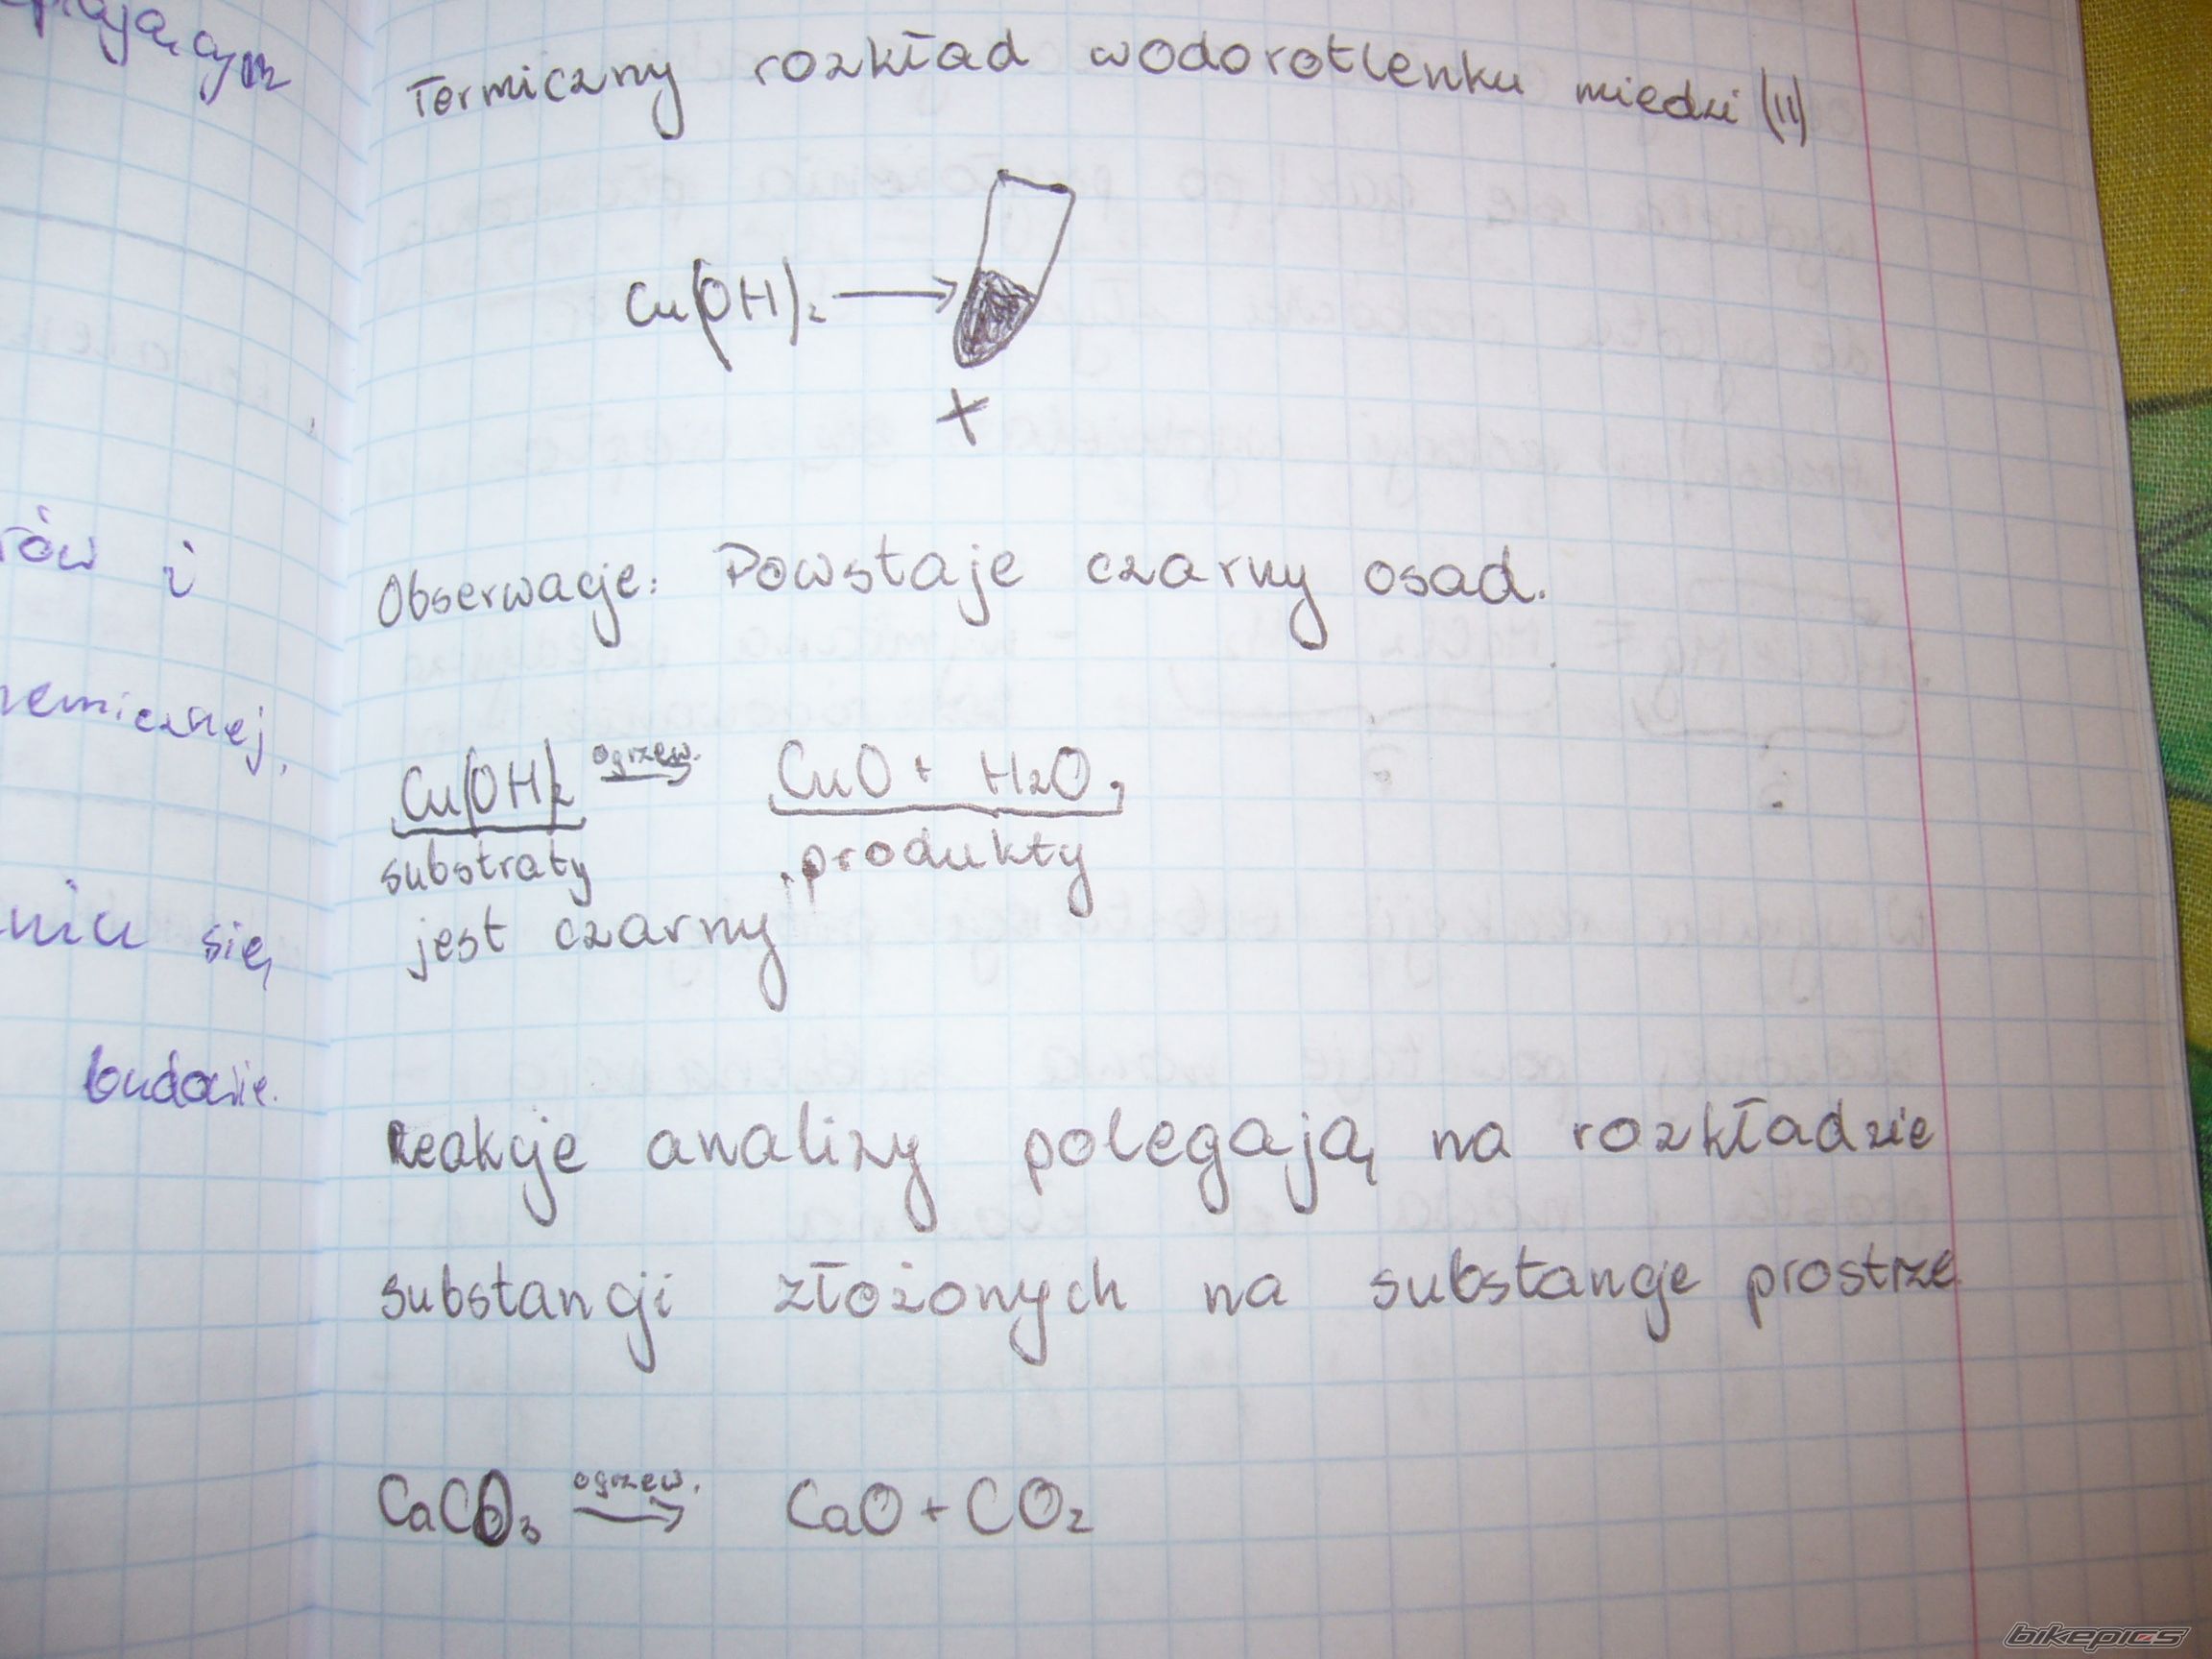 rów i
się
budowie.
Termiczny rozkład wodorotlenku miedzi (II)
Cu(OH)₂ →
Obserwacje: Powstaje czarny osad.
Cu(OH)₂ ogrzew. → CuO + H₂O
substraty produkty
jest czarny
Reakcje analizy polegają na rozkładzie
substancji złożonych na substancje prostrze
CaCO₃ ogrzew. → CaO + CO₂
bikepics